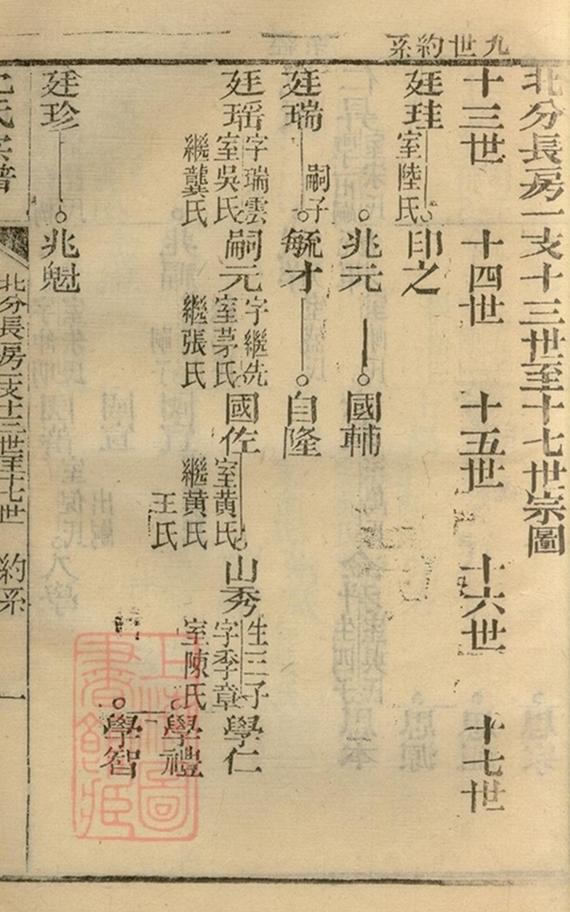 九世約系
北分長房一支十三世至十七世宗圖
十三世 十四世 十五世 十六世 十七世
廷珪 室陸氏 印之
兆元 國輔
廷瑞 嗣子 毓才 自隆
廷瑶 字瑞雲 室吳氏 繼龔氏 嗣元 字繼先 室茅氏 繼張氏 國佐 室黄氏 繼黄氏 王氏 山秀 生三子 字季章 室陳氏 學仁
學禮
學智
廷珍 兆魁
氏宗譜 北分長房一支十三世至十七世 約系 一